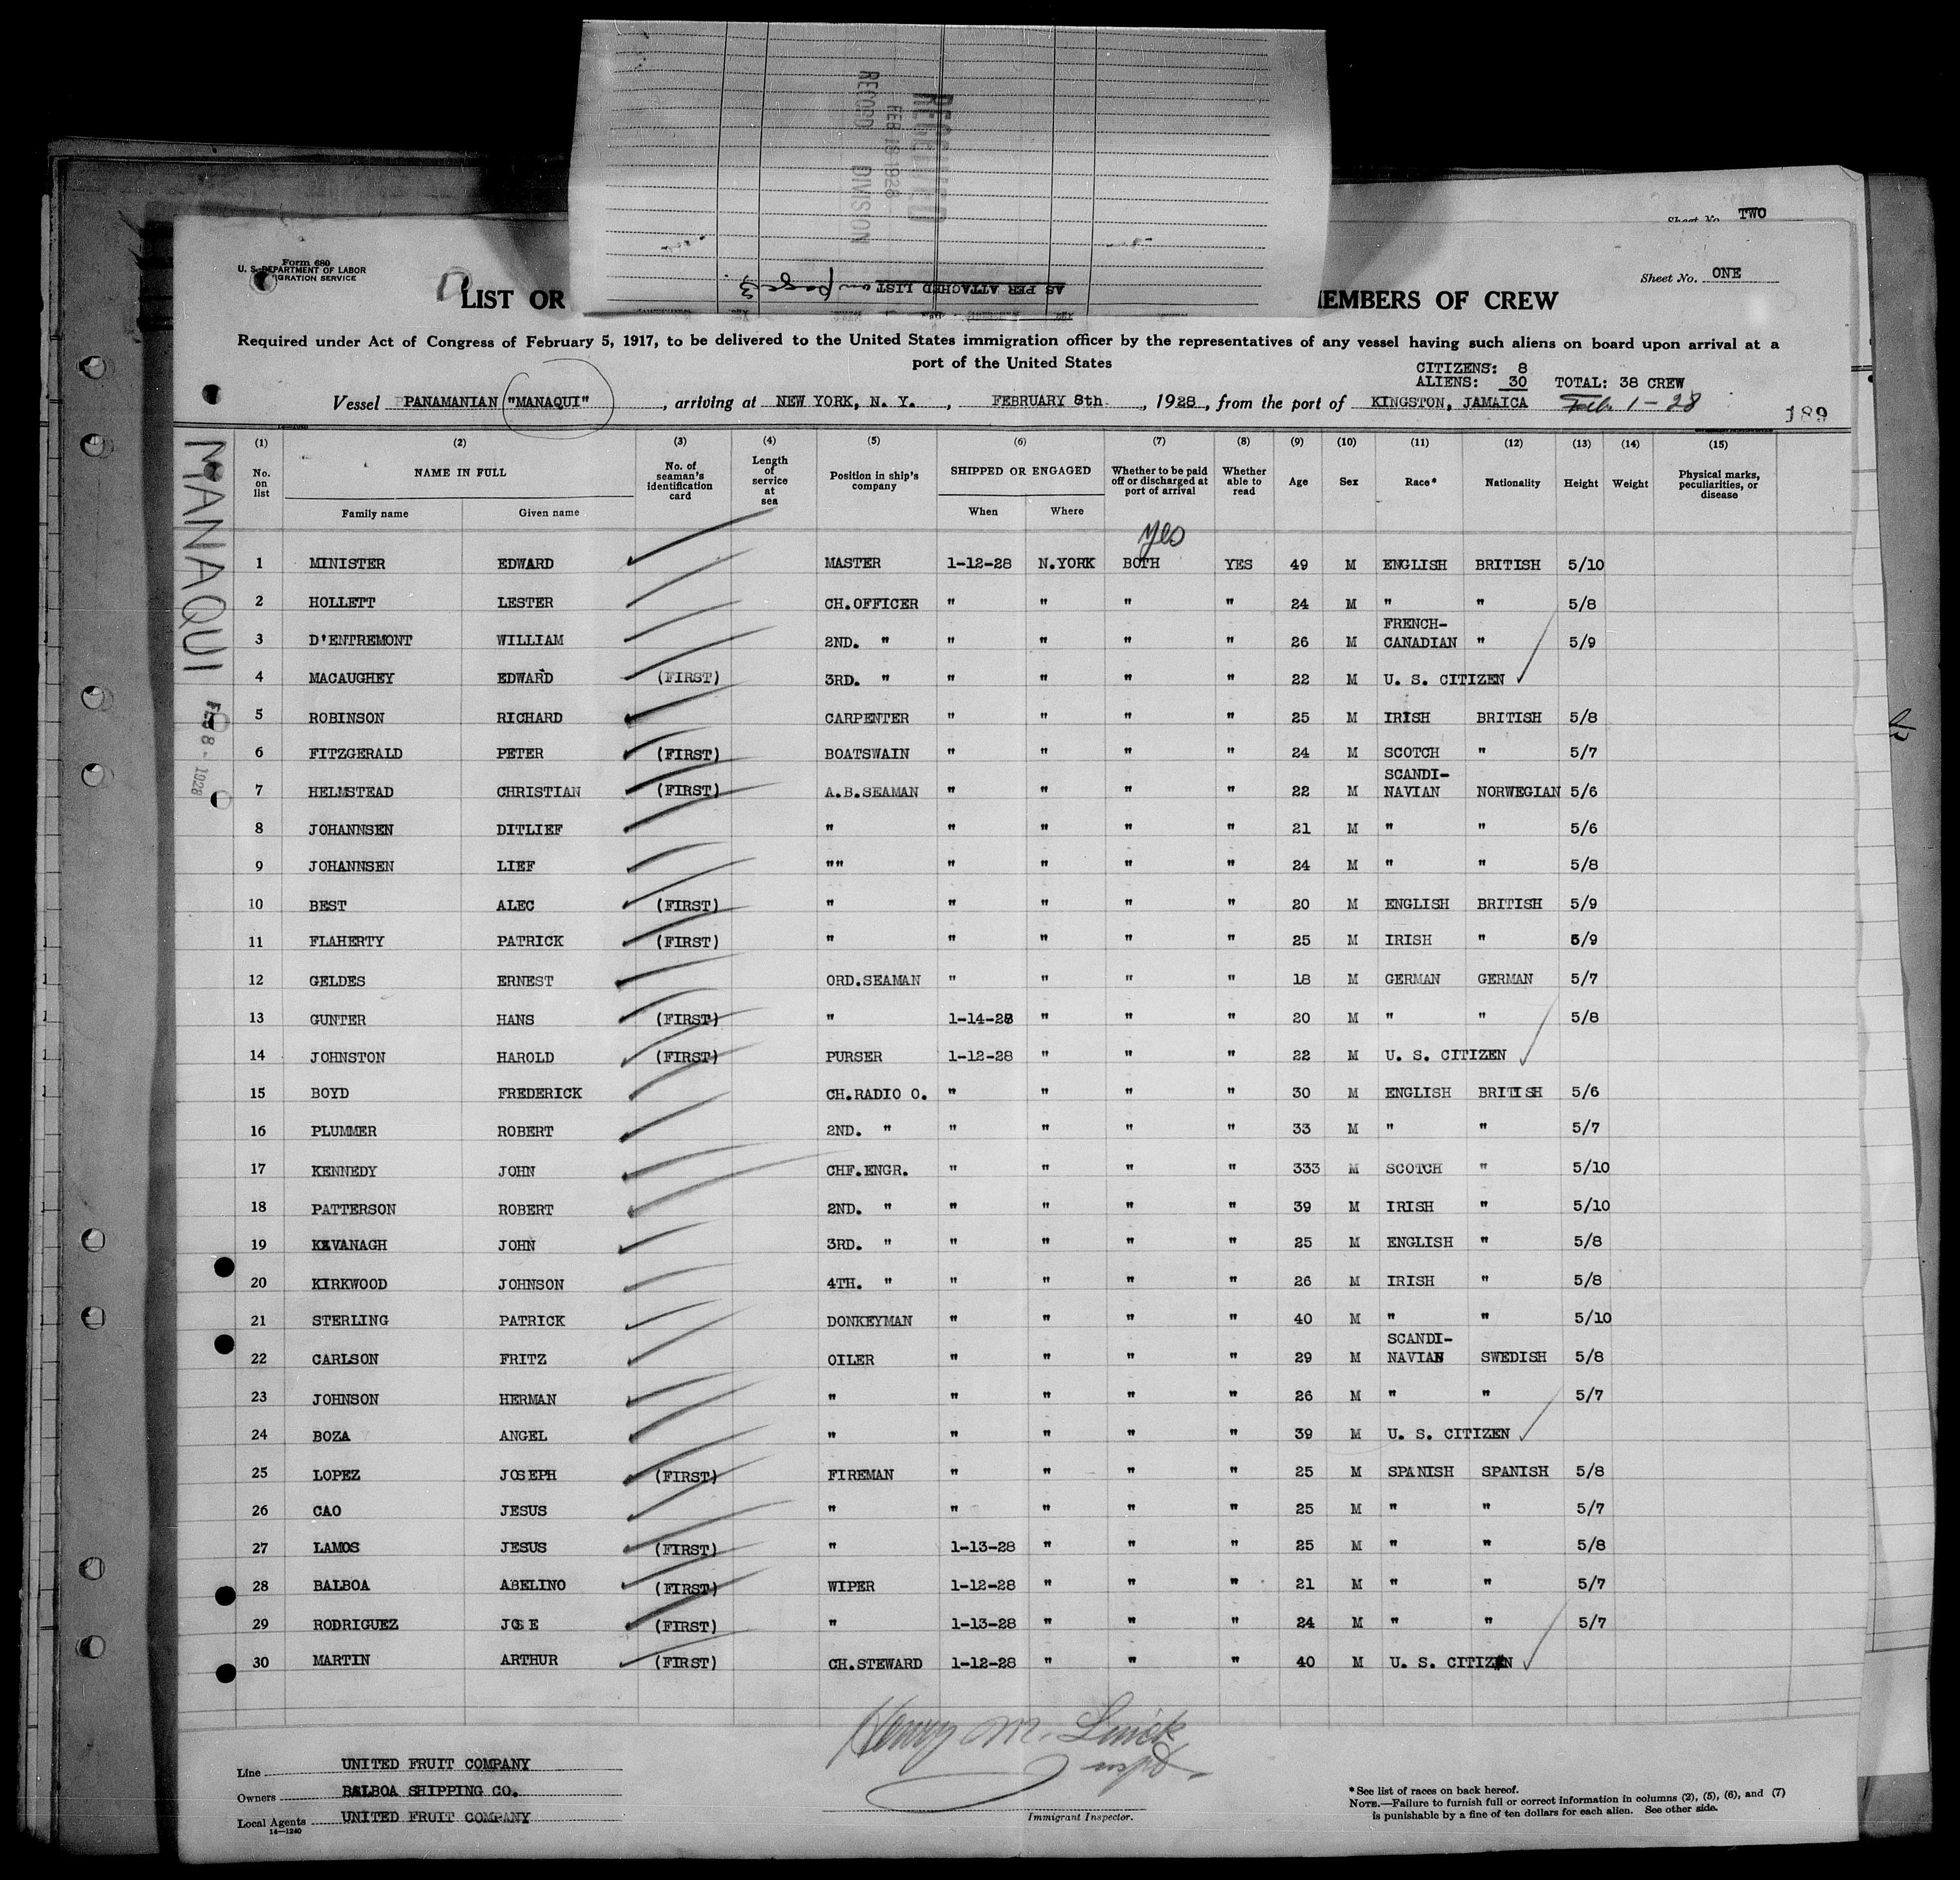 RECEIVED
FEB 13 1928
RECORD DIVISION
AS PER ATTACHED LIST on page 3
Sheet No. TWO
Form 680
U. S. DEPARTMENT OF LABOR
IGRATION SERVICE
Sheet No. ONE
LIST OR EMBERS OF CREW
Required under Act of Congress of February 5, 1917, to be delivered to the United States immigration officer by the representatives of any vessel having such aliens on board upon arrival at a
port of the United States
CITIZENS: 8
ALIENS: 30 TOTAL: 38 CREW
Vessel PANAMANIAN "MANAQUI", arriving at NEW YORK, N. Y., FEBRUARY 8th, 1928, from the port of KINGSTON, JAMAICA Feb. 1-28
189
MANAQUI
FEB 8 - 1928
(1) (2) (3) (4) (5) (6) (7) (8) (9) (10) (11) (12) (13) (14) (15)
No. on list NAME IN FULL No. of seaman's identification card Length of service at sea Position in ship's company SHIPPED OR ENGAGED Whether to be paid off or discharged at port of arrival Whether able to read Age Sex Race* Nationality Height Weight Physical marks, peculiarities, or disease
Family name Given name When Where
yes
1 MINISTER EDWARD MASTER 1-12-28 N.YORK BOTH YES 49 M ENGLISH BRITISH 5/10
2 HOLLETT LESTER CH.OFFICER " " " " 24 M " " 5/8
3 D'ENTREMONT WILLIAM 2ND. " " " " " 26 M FRENCH-CANADIAN " 5/9
4 MACAUGHEY EDWARD (FIRST) 3RD. " " " " " 22 M U. S. CITIZEN
5 ROBINSON RICHARD CARPENTER " " " " 25 M IRISH BRITISH 5/8
6 FITZGERALD PETER (FIRST) BOATSWAIN " " " " 24 M SCOTCH " 5/7
7 HELMSTEAD CHRISTIAN (FIRST) A.B.SEAMAN " " " " 22 M SCANDI-NAVIAN NORWEGIAN 5/6
8 JOHANNSEN DITLIEF " " " " " 21 M " " 5/6
9 JOHANNSEN LIEF "" " " " " 24 M " " 5/8
10 BEST ALEC (FIRST) " " " " " 20 M ENGLISH BRITISH 5/9
11 FLAHERTY PATRICK (FIRST) " " " " " 25 M IRISH " 5/9
12 GELDES ERNEST ORD.SEAMAN " " " " 18 M GERMAN GERMAN 5/7
13 GUNTER HANS (FIRST) " 1-14-28 " " " 20 M " " 5/8
14 JOHNSTON HAROLD (FIRST) PURSER 1-12-28 " " " 22 M U. S. CITIZEN
15 BOYD FREDERICK CH.RADIO O. " " " " 30 M ENGLISH BRITISH 5/6
16 PLUMMER ROBERT 2ND. " " " " " 33 M " " 5/7
17 KENNEDY JOHN CHF.ENGR. " " " " 333 M SCOTCH " 5/10
18 PATTERSON ROBERT 2ND. " " " " " 39 M IRISH " 5/10
19 KAVANAGH JOHN 3RD. " " " " " 25 M ENGLISH " 5/8
20 KIRKWOOD JOHNSON 4TH. " " " " " 26 M IRISH " 5/8
21 STERLING PATRICK DONKEYMAN " " " " 40 M " " 5/10
22 CARLSON FRITZ OILER " " " " 29 M SCANDI-NAVIAN SWEDISH 5/8
23 JOHNSON HERMAN " " " " " 26 M " " 5/7
24 BOZA ANGEL " " " " " 39 M U. S. CITIZEN
25 LOPEZ JOSEPH (FIRST) FIREMAN " " " " 25 M SPANISH SPANISH 5/8
26 CAO JESUS " " " " " 25 M " " 5/7
27 LAMOS JESUS (FIRST) " 1-13-28 " " " 25 M " " 5/8
28 BALBOA ABELINO (FIRST) WIPER 1-12-28 " " " 21 M " " 5/7
29 RODRIGUEZ JOSE (FIRST) " 1-13-28 " " " 24 M " " 5/7
30 MARTIN ARTHUR (FIRST) CH.STEWARD 1-12-28 " " " 40 M U. S. CITIZEN
Henry M.
Inspt.
Immigrant Inspector.
Line UNITED FRUIT COMPANY
Owners BALBOA SHIPPING CO.
Local Agents UNITED FRUIT COMPANY
14-1240
*See list of races on back hereof.
NOTE.—Failure to furnish full or correct information in columns (2), (5), (6), and (7)
is punishable by a fine of ten dollars for each alien. See other side.